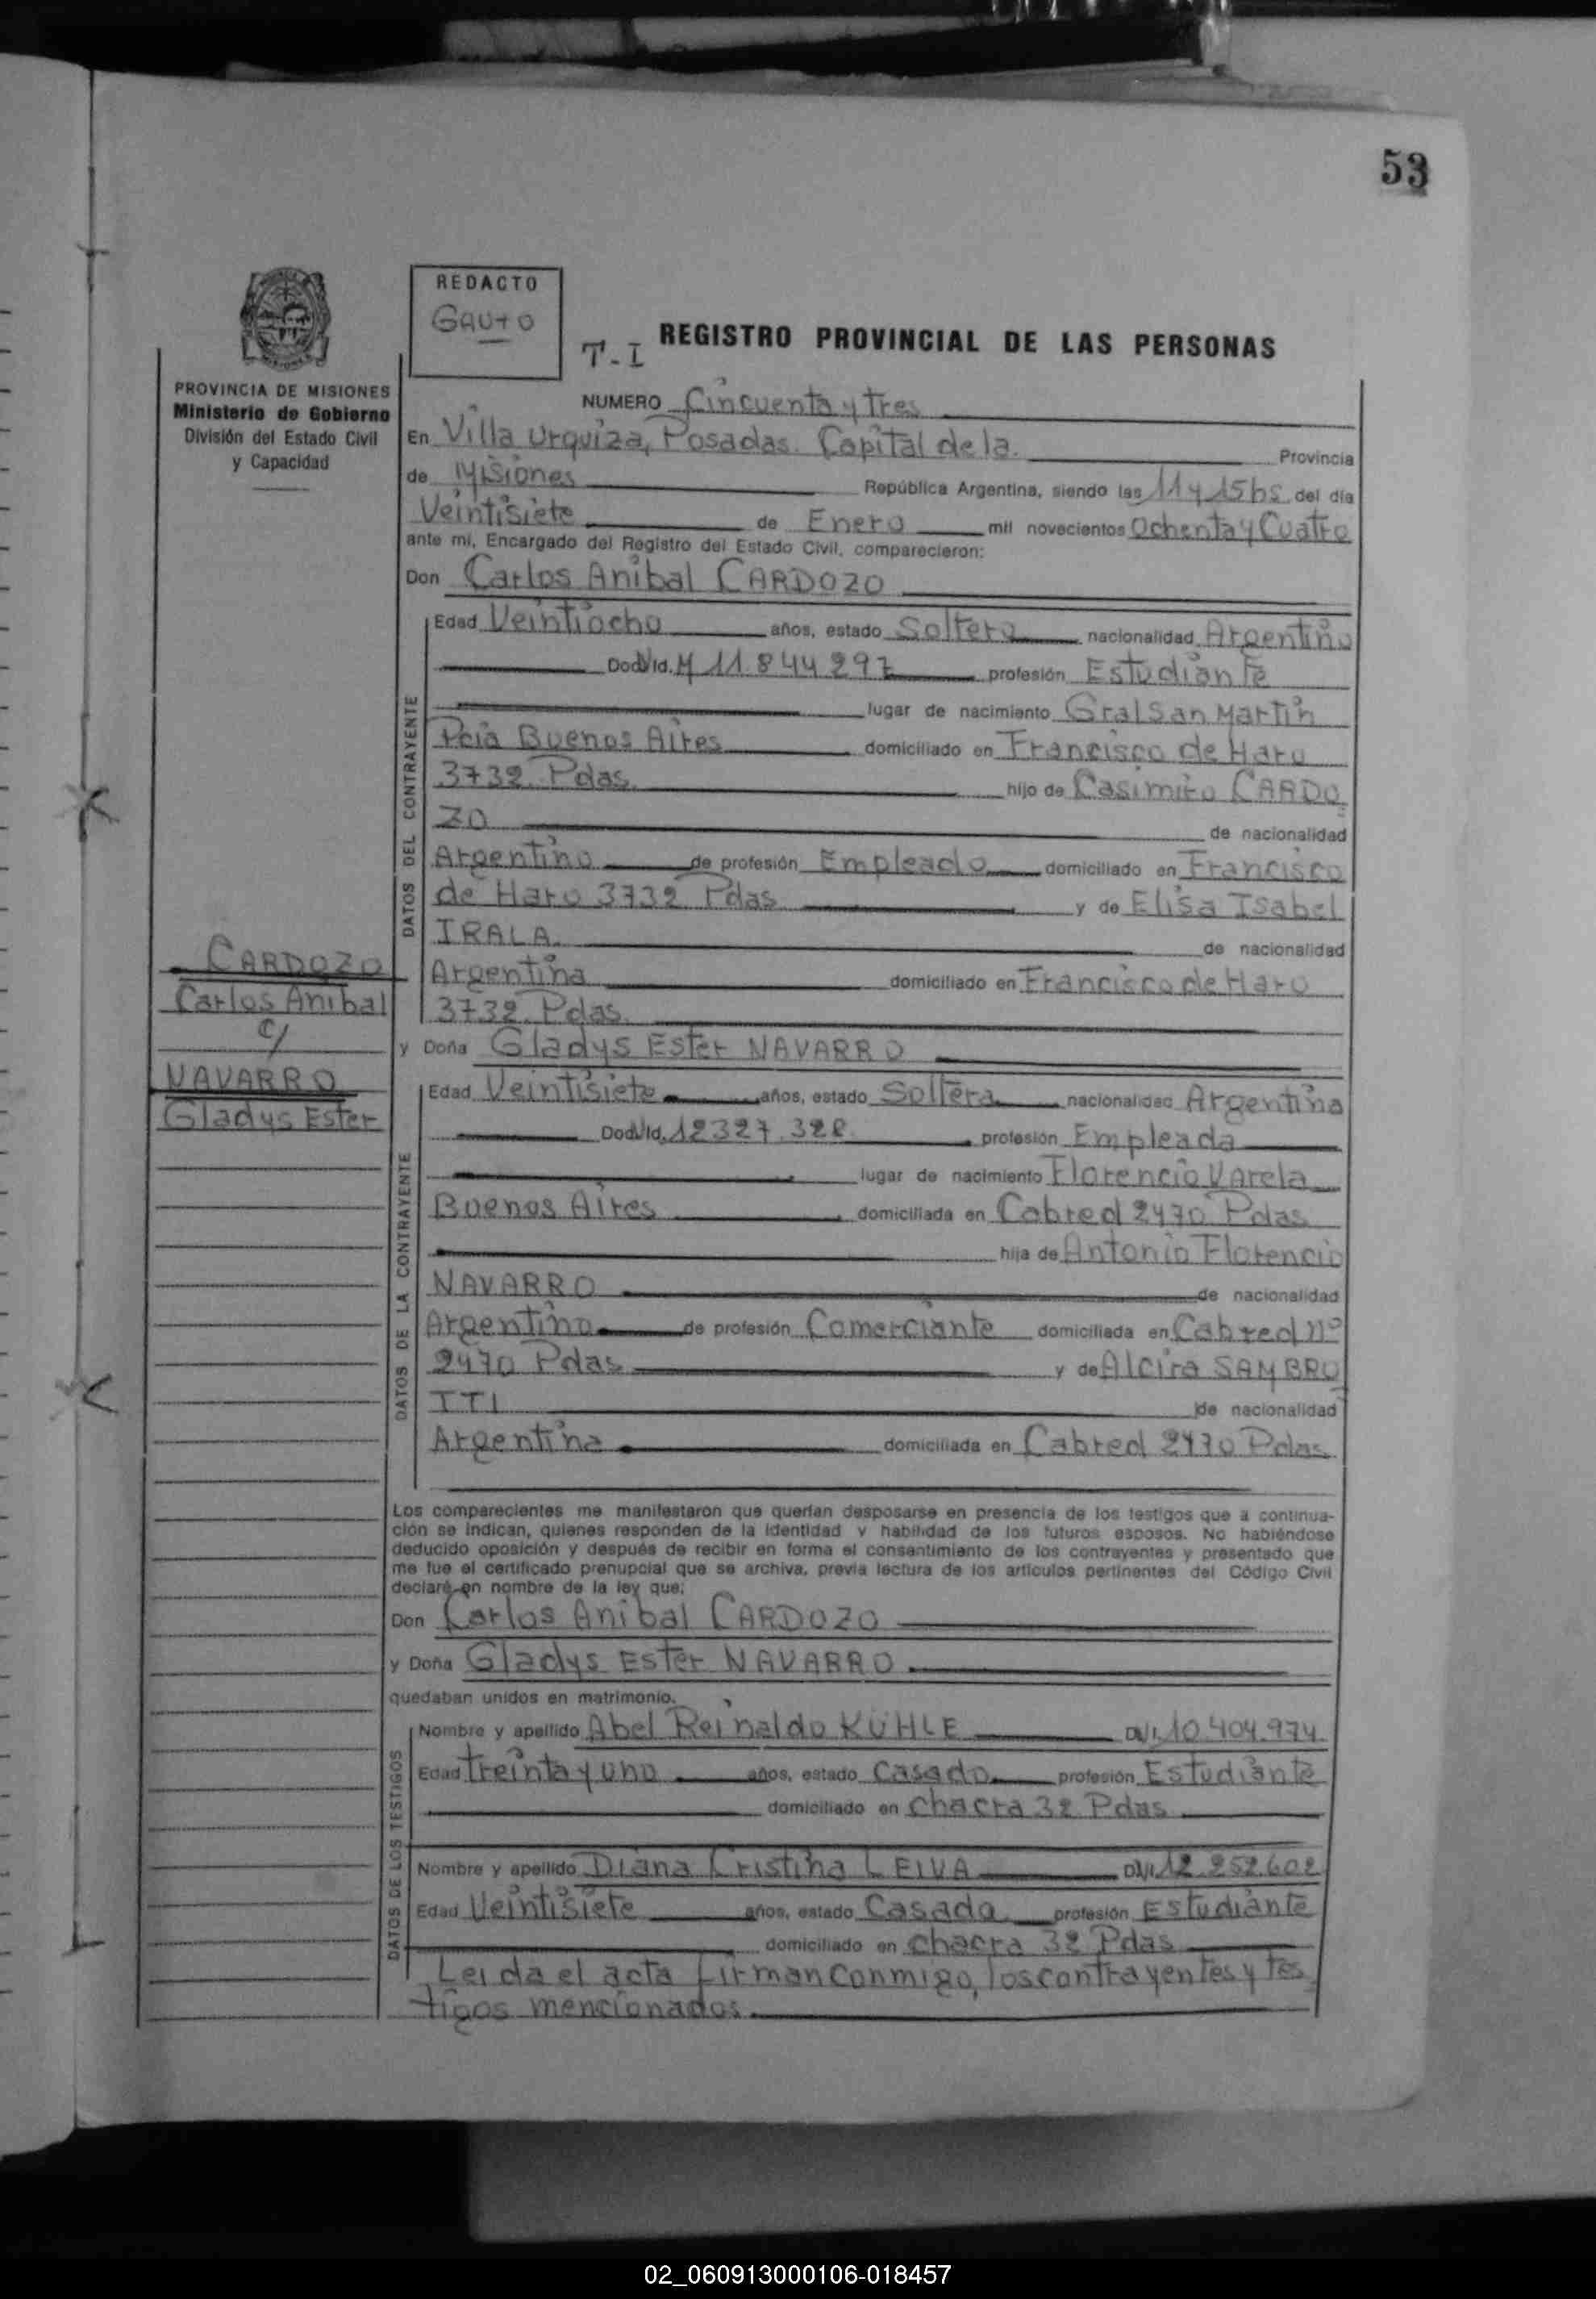 53
REDACTO
GAUTO
T-I REGISTRO PROVINCIAL DE LAS PERSONAS
PROVINCIA DE MISIONES
Ministerio de Gobierno
División del Estado Civil
y Capacidad
NUMERO Cincuenta y Tres
En Villa Urquiza, Posadas. Capital de la Provincia
de Misiones República Argentina, siendo las 11 y 15 hs. del día
Veintisiete de Enero mil novecientos Ochenta y Cuatro
ante mi, Encargado del Registro del Estado Civil, comparecieron:
Don Carlos Anibal CARDOZO
DATOS DEL CONTRAYENTE
Edad Veintiocho años, estado Soltero nacionalidad Argentino
M 11.844.297 profesión Estudiante
lugar de nacimiento Gral San Martin
Pcia Buenos Aires domiciliado en Francisco de Haro
3732. Pdas. hijo de Casimiro CARDO
ZO de nacionalidad
Argentino de profesión Empleado domiciliado en Francisco
de Haro 3732 Pdas y de Elisa Isabel
IRALA de nacionalidad
Argentina domiciliado en Francisco de Haro
3732. Pdas.
CARDOZO
Carlos Anibal
c/
NAVARRO
Gladys Ester
y Doña Gladys Ester NAVARRO
DATOS DE LA CONTRAYENTE
Edad Veintisiete años, estado Soltera nacionalidad Argentina
12327.328 profesión Empleada
lugar de nacimiento Florencio Varela
Buenos Aires domiciliada en Cabred 2470 Pdas
hija de Antonio Florencio
NAVARRO de nacionalidad
Argentino de profesión Comerciante domiciliada en Cabred nº
2470 Pdas y de Alcira SAMBRU
TTI de nacionalidad
Argentina domiciliada en Cabred 2470 Pdas
Los comparecientes me manifestaron que querían desposarse en presencia de los testigos que a continua-
ción se indican, quienes responden de la identidad y habilidad de los futuros esposos. No habiéndose
deducido oposición y después de recibir en forma el consentimiento de los contrayentes y presentado que
me fue el certificado prenupcial que se archiva, previa lectura de los artículos pertinentes del Código Civil
declaré en nombre de la ley que:
Don Carlos Anibal CARDOZO
y Doña Gladys Ester NAVARRO
quedaban unidos en matrimonio.
DATOS DE LOS TESTIGOS
Nombre y apellido Abel Reinaldo KÜHLE 10.404.974
Edad treinta y uno años, estado Casado profesión Estudiante
domiciliado en chacra 32 Pdas
Nombre y apellido Diana Cristina LEIVA 12.252.602
Edad Veintisiete años, estado Casada profesión Estudiante
domiciliado en chacra 32 Pdas
Leida el acta firman conmigo, los contrayentes y tes
tigos mencionados
02_060913000106-018457